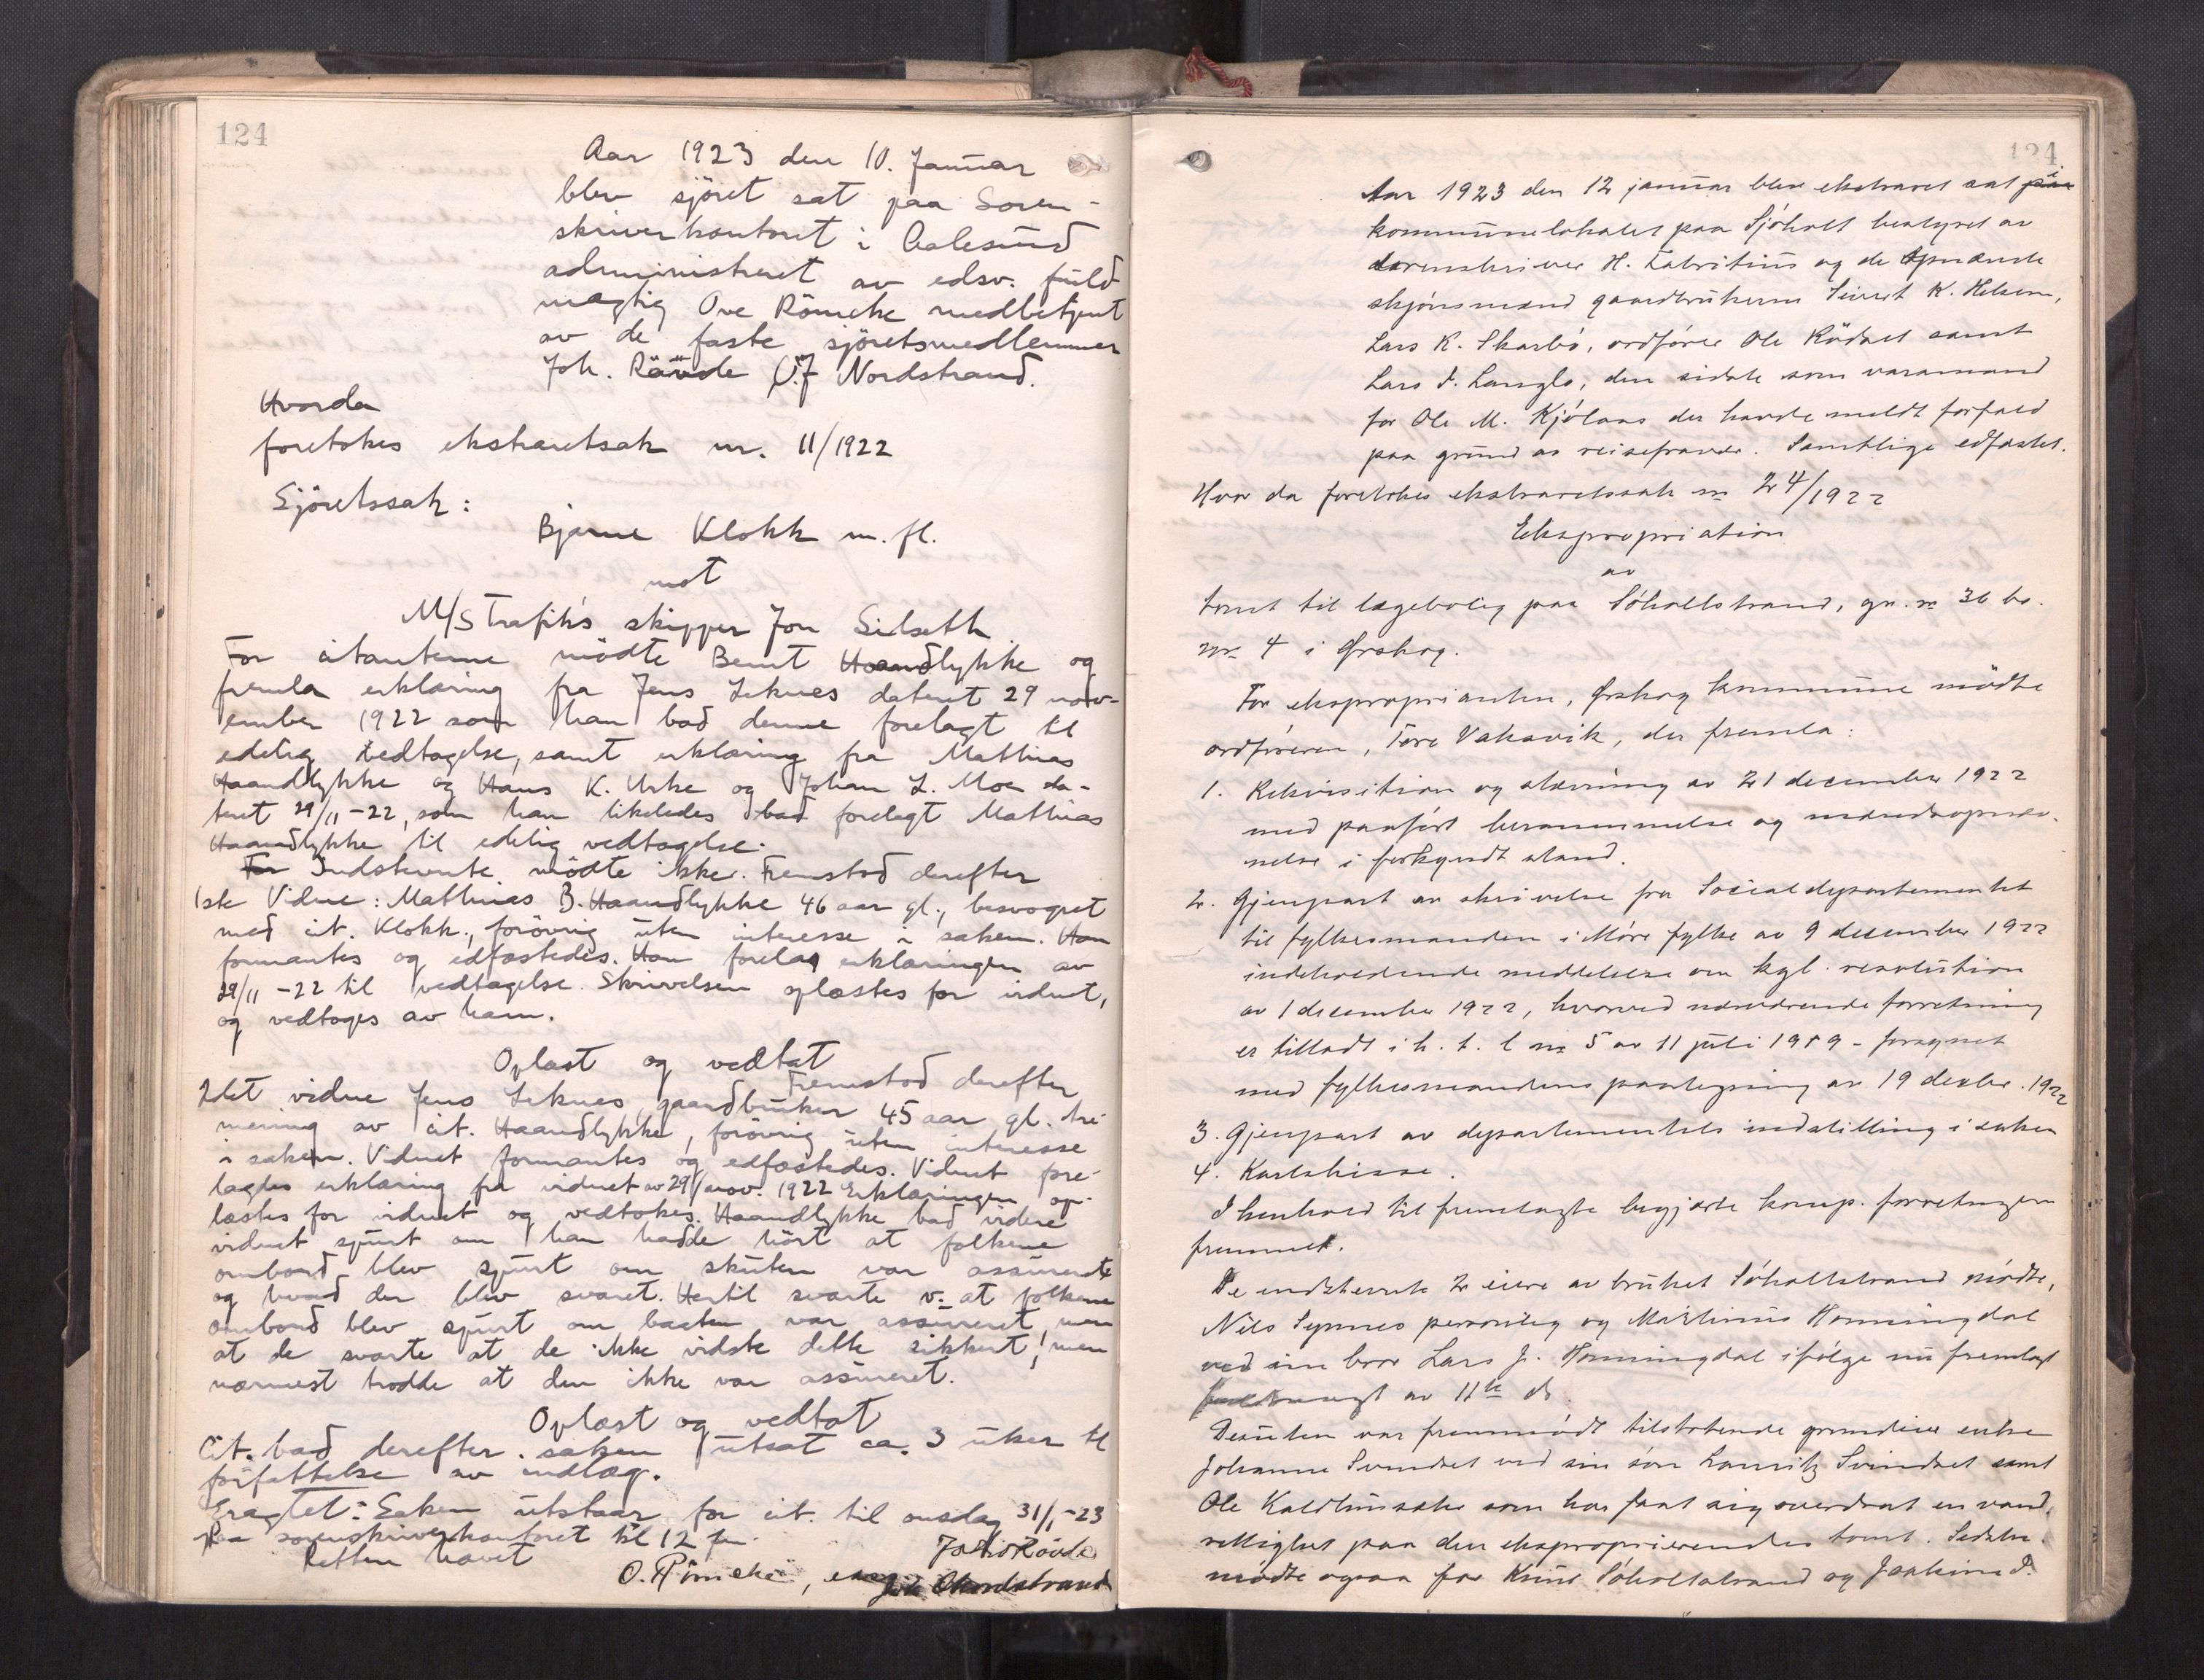 124
Aar 1923 den 10. Januar
blev sjöret sat paa Soren-
skriverkontoret i Aalesund
administreret av edsv. fuld
mægtig Ove Römcke medbetjent
av de faste sjöretsmedlemmer
Joh. Rävde O.J Nordstrand.
Hvorda
foretokes ekstraretsak nr. 11/1922
Sjöretssak:
Bjarne Klokk m. fl.
mot
M/S Trafik's skipper Jon Silseth
For citanterne mödte Bernt Haandlykke og
fremla erklæring fra Jens Leknes dateret 29 nov-
ember 1922 som han bad denne forelagt til
edelig vedtagelse, samt erklæring fra Mathias
Haandlykke og Hans K. Urke og Johan L. Moe da-
teret 29/11-22, som han likeledes bad forelagt Mathias
Haandlykke til edelig vedtagelse.
For Indstevnte mödte ikke. Fremstod derefter
1ste Vidne: Mathias B. Haandlykke 46 aar gl., besvogret
med cit. Klokk, forövrig uten interesse i saken. Han
formantes og edfæstedes. Han forelaa erklæringen av
29/11-22 til vedtagelse. Skrivelsen oplæstes for vidnet,
og vedtoges av ham.
Oplæst og vedtat
Fremstod derefter
2det vidne Jens Leknes, gaardbruker 45 aar gl. tre-
mening av cit. Haandlykke, forövrig uten interesse
i saken. Vidnet formantes og edfæstedes. Vidnet fore-
lagdes erklæring fra vidnet av 29/nov. 1922 Erklæringen op-
læstes for vidnet og vedtokes. Haandlykke bad videre
vidnet spurt om han hadde hört at folkene
ombord blev spurt om skuten var assureret
og hvad der blev svaret. Hertil svarte v. at folkene
ombord blev spurt om baaten var assureret, men
at de svarte at de ikke vidste dette sikkert, men
nærmest trodde at den ikke var assureret.
Oplæst og vedtat
Cit. bad derefter saken utsat ca. 3 uker til
forfattelse av indlæg.
Eragtet: Saken utstaar for cit. til onsdag 31/1-23
paa sorenskriverkontoret kl 12 fm.
Retten hævet
O. Römcke, Joh. Rövde
Nordstrand
124
Aar 1923 den 12 januar blev ekstraret sat paa
kommunelokalet paa Sjöholt bestyret av
sorenskriver H. Fabritius og de opnævnte
skjönsmænd gaardbrukerne Sivert K. Helsem,
Lars R. Skarbö, ordförer Ole Rödset samt
Lars P. Langlo, den sidste som varamand
for Ole M. Kjölaas der havde meldt forfald
paa grund av reisefravær. Samtlige edfæstet.
Hvor da foretokes ekstraretssak nr 24/1922
Ekspropriation
av
tomt til lægebolig paa Söholtstrand, gn. nr 36 br.
nr 4 i Ørskog.
For eksproprianten, Ørskog kommune mödte
ordföreren, Tore Vaksvik, der fremla:
1. Rekvisition og stævning av 21 december 1922
med paaført berammelse og mændsopnæv-
nelse i forkyndt stand.
2. Gjenpart av skrivelse fra Socialdepartementet
til fylkesmanden i Möre fylke av 9 december 1922
indeholdende meddelelse om kgl. resolution
av 1 december 1922, hvorved nærværende forretning
er tilladt i h. t. l nr 5 av 11 juli 1919 - forsynet
med fylkesmandens paategning av 19 decbr. 1922
3. Gjenpart av departementets indstilling i saken
4. Kartskisse.
I henhold til fremlagte begjærte komp. forretningen
fremmet.
De indstevnte 2 eiere av bruket Söholtstrand mödte,
Nils Synnes personlig og Martinus Honningdal
ved sin bror Lars J. Honningdal ifölge nu fremlagt
fuldmagt av 11te ds.
Desuten var fremmödt tilstötende grundeier enke
Johanne Svindset ved sin sön Lauritz Svindset samt
Ole Kaldhussæter som har faat sig overdrat en vand-
rettighet paa den eksproprierendes tomt. Sedeler
mödte ogsaa for Knut Söholtstrand og Joakim P.